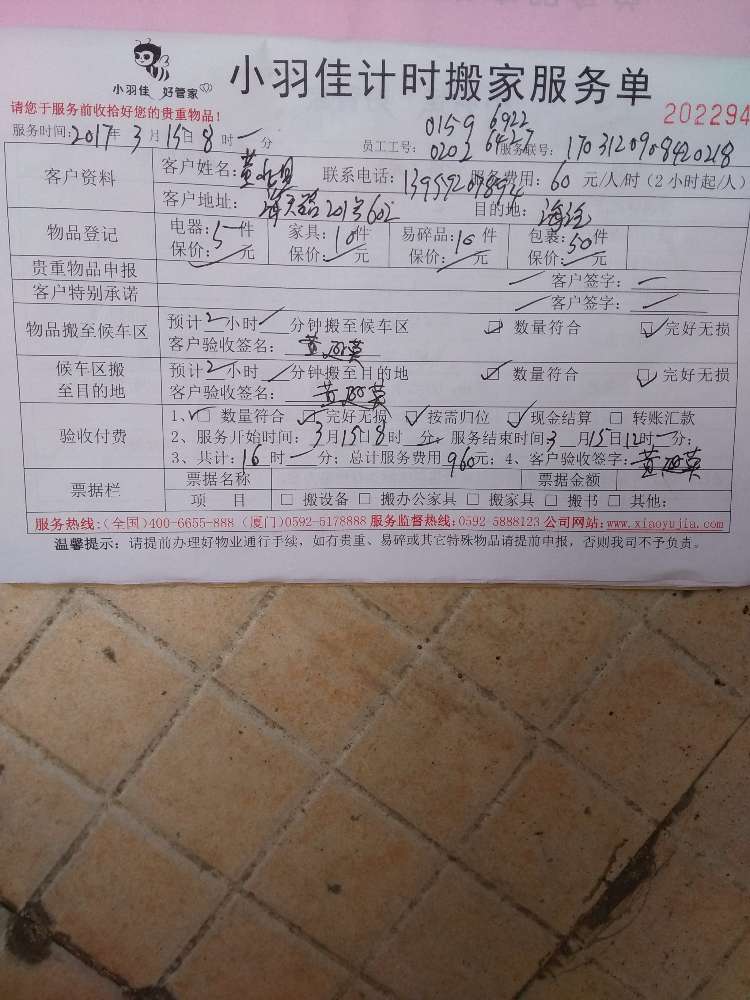 小羽佳 好管家
小羽佳计时搬家服务单
请您于服务前收拾好您的贵重物品!
202294
服务时间:2017年3月15日8时一分
员工工号: 0159 6922
0202 6427
服务联号: 1703120908420218
客户资料
客户姓名:黄 联系电话: 服务费用:60元/人/时(2小时起/人)
客户地址: 201号602 目的地:海沧
物品登记
电器:5件 家具:10件 易碎品:10件 包裹:50件
保价: 元 保价: 元 保价: 元 保价: 元
贵重物品申报 客户签字:一
客户特别承诺 客户签字:一
物品搬至候车区
预计2小时 分钟搬至候车区 ☑ 数量符合 ☑ 完好无损
客户验收签名:黄 英
候车区搬
至目的地
预计2小时 分钟搬至目的地 ☑ 数量符合 ☑ 完好无损
客户验收签名:黄 英
验收付费
1、☑ 数量符合 ☑ 完好无损 ☑ 按需归位 ☑ 现金结算 □ 转账汇款
2、服务开始时间:3月15日8时 分;服务结束时间:3月15日12时一分;
3、共计:16时一分;总计服务费用960元;4、客户验收签字:黄 英
票据栏
票据名称 票据金额
项 目 □ 搬设备 □ 搬办公家具 □ 搬家具 □ 搬书 □ 其他:
服务热线:(全国)400-6655-888 (厦门)0592-5178888 服务监督热线:0592 5888123 公司网站:www.xiaoyujia.com
温馨提示:请提前办理好物业通行手续,如有贵重、易碎或其它特殊物品请提前申报,否则我司不予负责。